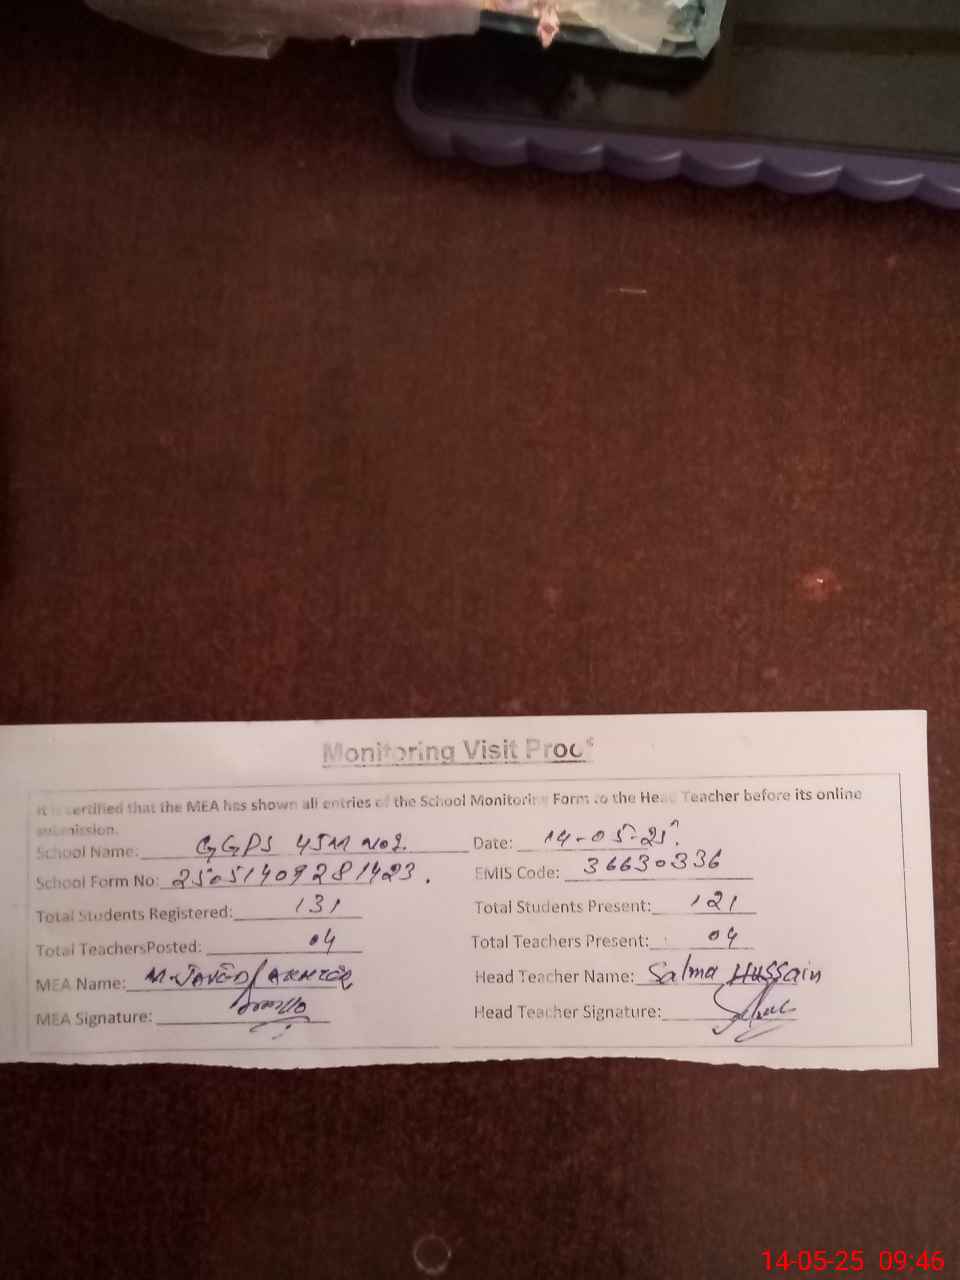 Monitoring Visit Proof
It is certified that the MEA has shown all entries of the School Monitoring Form to the Head Teacher before its online
submission.
School Name: GGPS 45M No2. Date: 14-05-25
School Form No: 2505140928 1423. EMIS Code: 36630336
Total Students Registered: 131 Total Students Present: 121
Total TeachersPosted: 04 Total Teachers Present: 04
MEA Name: M. JAVED AKHTER Head Teacher Name: Salma Hussain
MEA Signature: Head Teacher Signature:
14-05-25 09:46